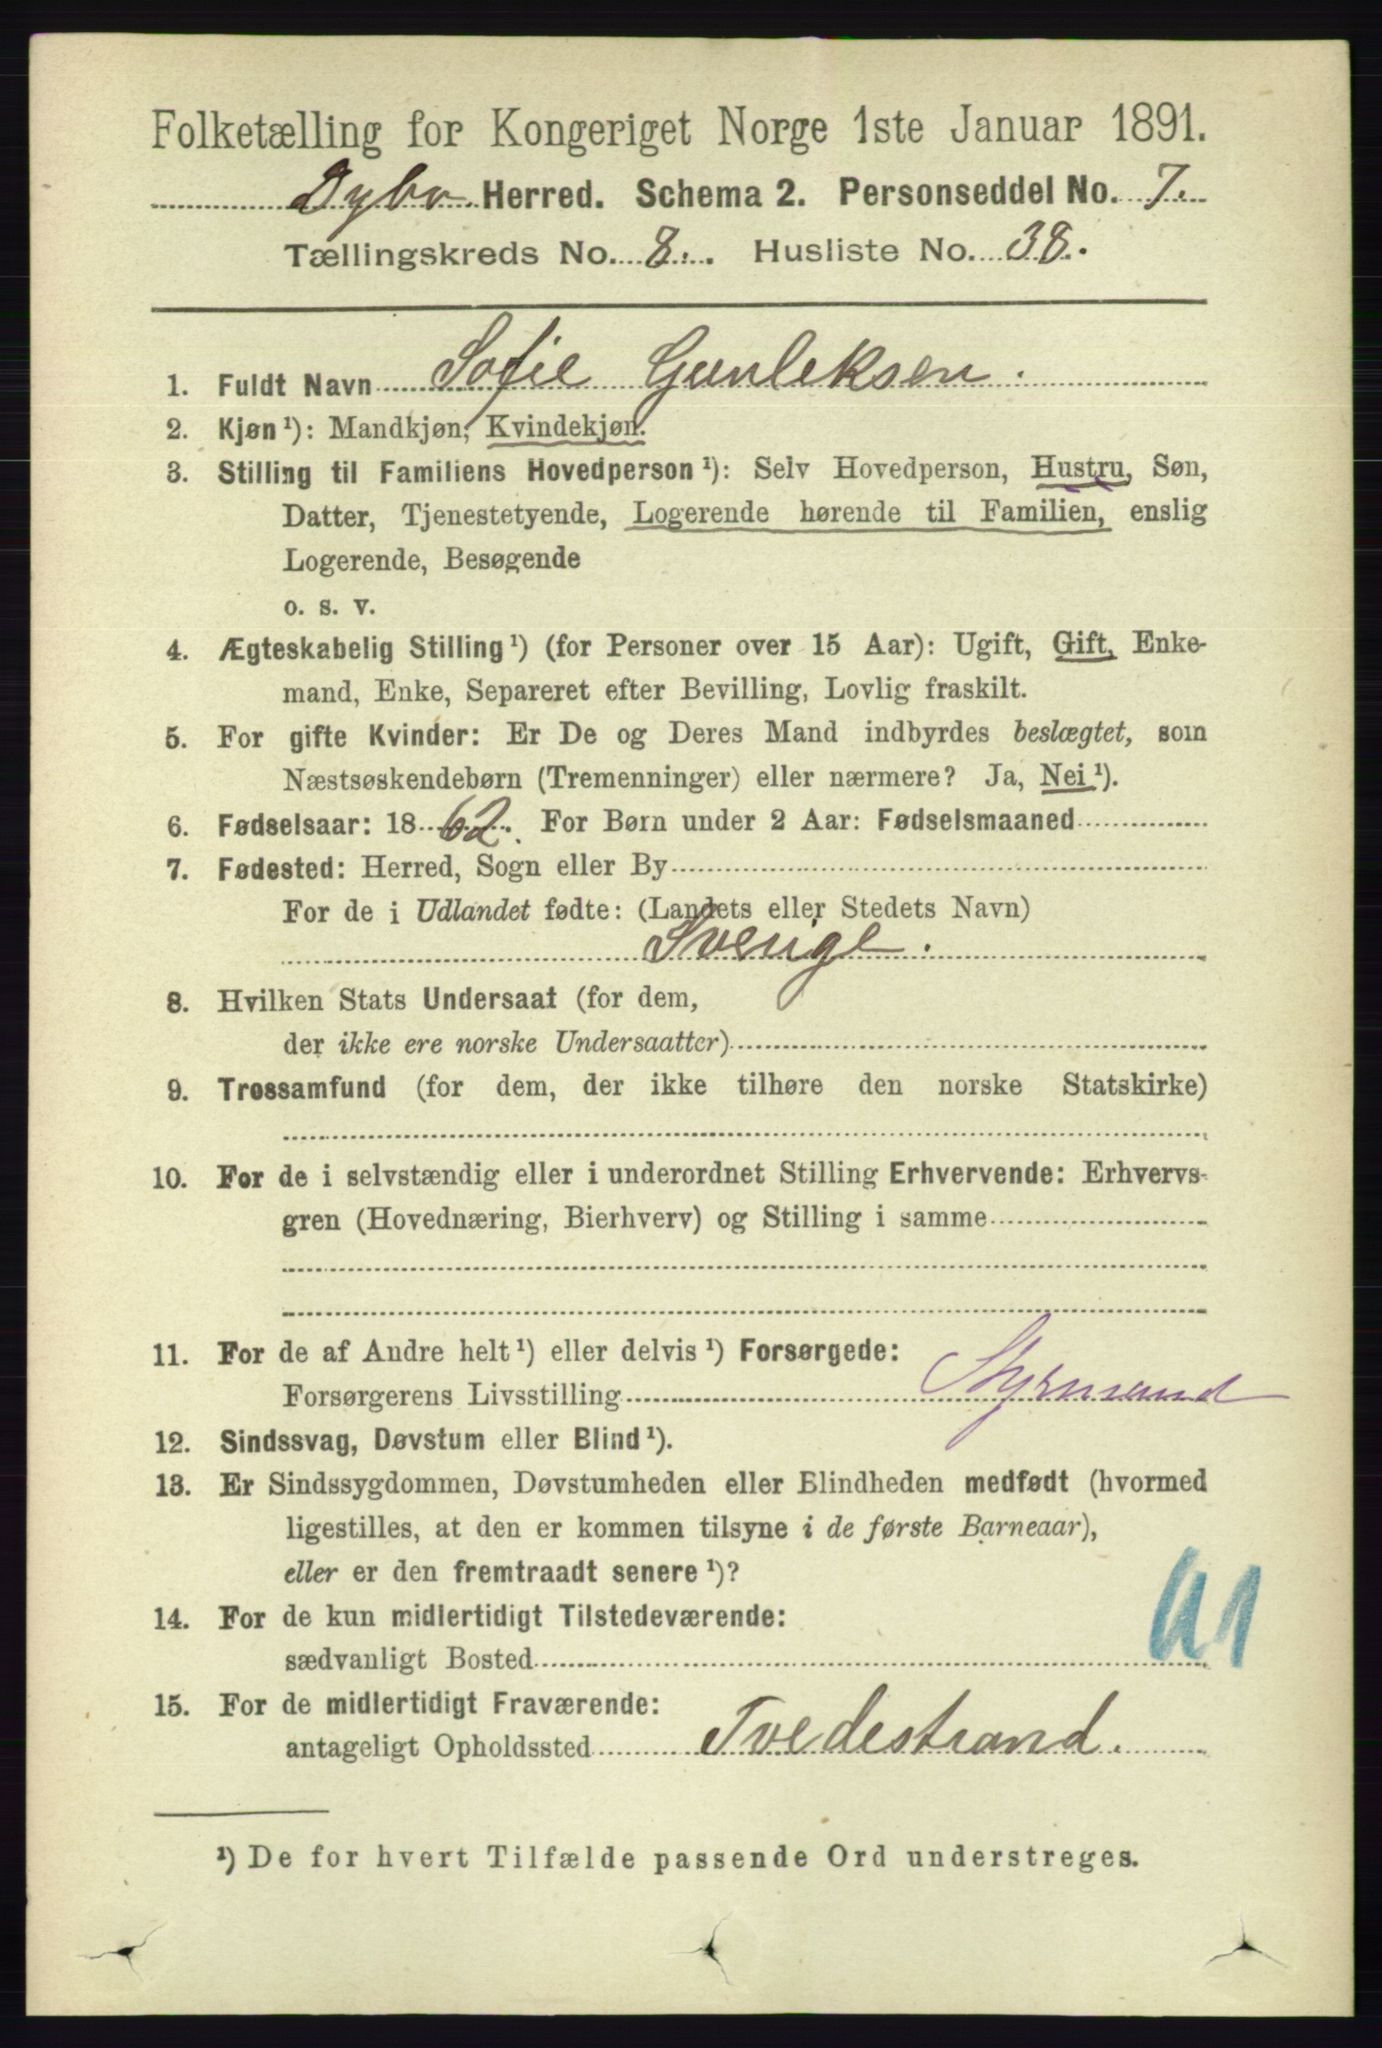 Folketælling for Kongeriget Norge 1ste Januar 1891.
Dybv. Herred. Schema 2. Personseddel No. 7.
Tællingskreds No. 8. Husliste No. 38.
1. Fuldt Navn Sofie Gunleksen.
2. Kjøn ¹): Mandkjøn, Kvindekjøn.
3. Stilling til Familiens Hovedperson ¹): Selv Hovedperson, Hustru, Søn,
Datter, Tjenestetyende, Logerende hørende til Familien, enslig
Logerende, Besøgende
o. s. v.
4. Ægteskabelig Stilling ¹) (for Personer over 15 Aar): Ugift, Gift, Enke-
mand, Enke, Separeret efter Bevilling, Lovlig fraskilt.
5. For gifte Kvinder: Er De og Deres Mand indbyrdes beslægtet, som
Næstsøskendebørn (Tremenninger) eller nærmere? Ja, Nei ¹).
6. Fødselsaar: 1862. For Børn under 2 Aar: Fødselsmaaned
7. Fødested: Herred, Sogn eller By
For de i Udlandet fødte: (Landets eller Stedets Navn)
Sverige.
8. Hvilken Stats Undersaat (for dem,
der ikke ere norske Undersaatter)
9. Trossamfund (for dem, der ikke tilhøre den norske Statskirke)
10. For de i selvstændig eller i underordnet Stilling Erhvervende: Erhvervs-
gren (Hovednæring, Bierhverv) og Stilling i samme
11. For de af Andre helt ¹) eller delvis ¹) Forsørgede:
Forsørgerens Livsstilling Styrmand
12. Sindssvag, Døvstum eller Blind ¹).
13. Er Sindssygdommen, Døvstumheden eller Blindheden medfødt (hvormed
ligestilles, at den er kommen tilsyne i de første Barneaar),
eller er den fremtraadt senere ¹)?
14. For de kun midlertidigt Tilstedeværende:
sædvanligt Bosted
15. For de midlertidigt Fraværende:
antageligt Opholdssted Tvedestrand.
¹) De for hvert Tilfælde passende Ord understreges.